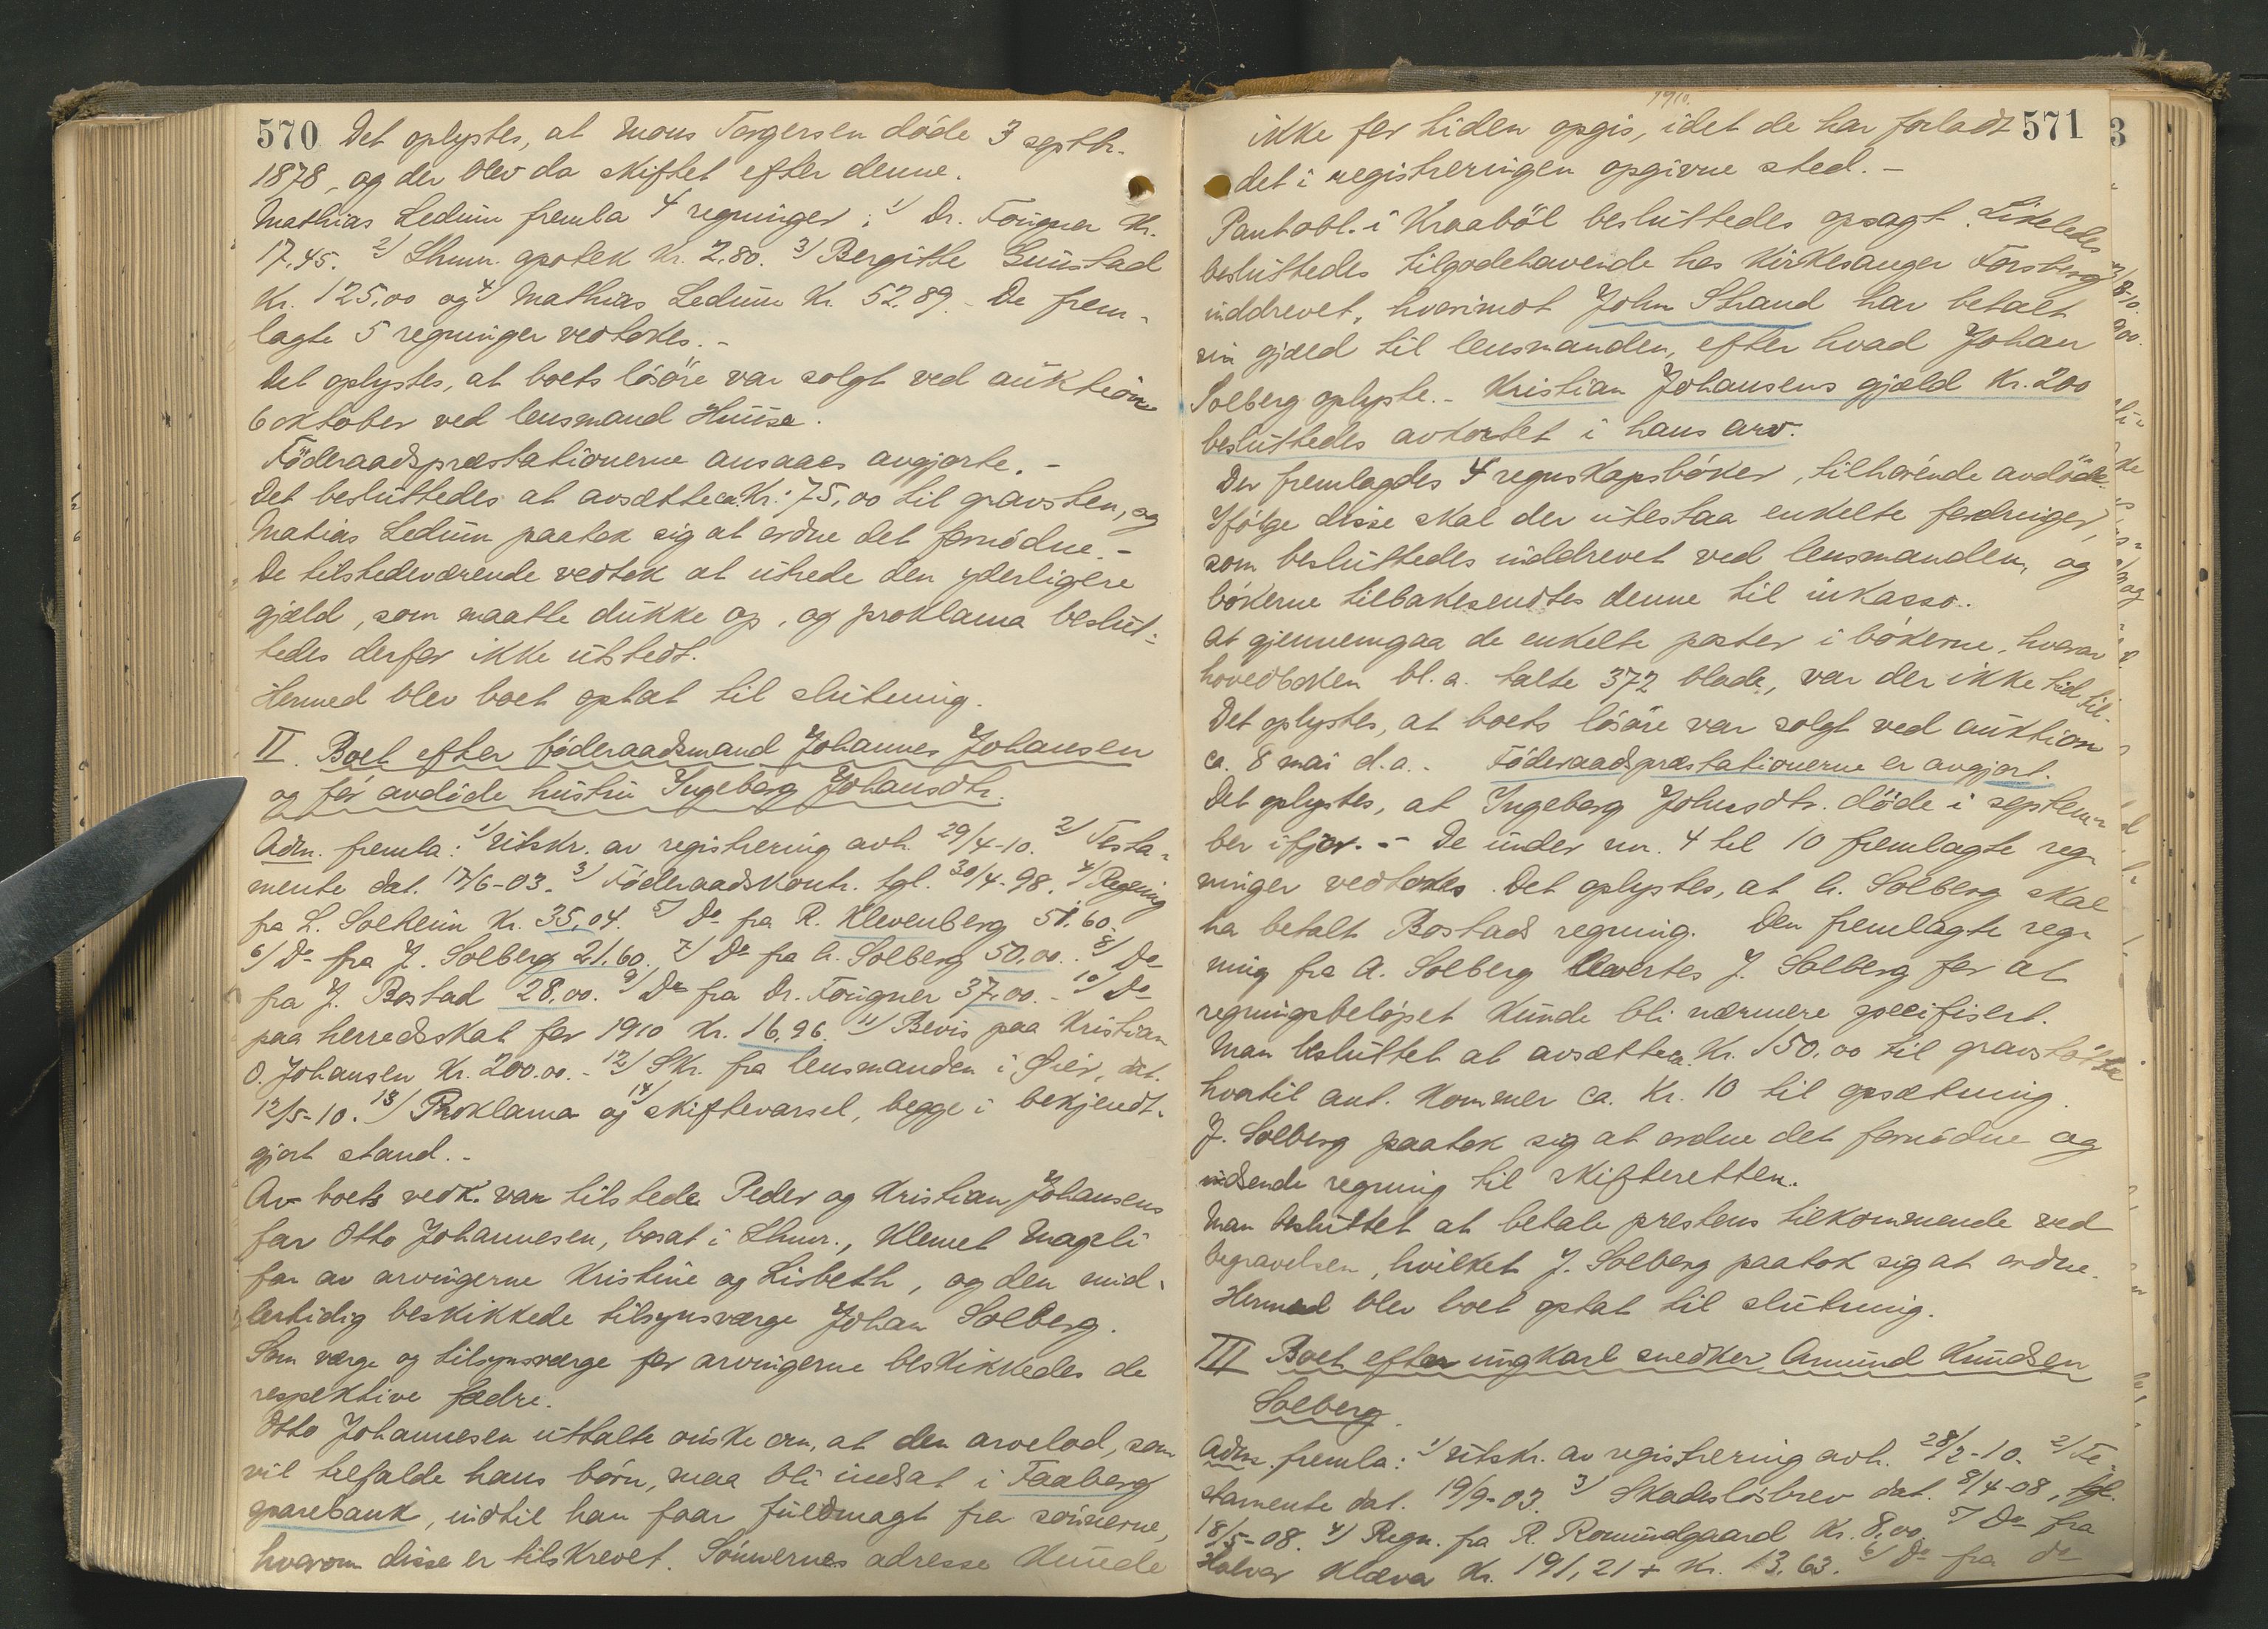 570 Det oplystes, at Mons Torgersen døde 3 septbr.
1878, og der blev da skiftet efter denne.
Mathias Ledum fremla 4 regninger: 1) Dr. Fougner Kr.
17,45. 2) Lhmr. apotek Kr. 2,80. 3) Bergithe Suustad
Kr. 125,00 og 4) Mathias Ledum Kr. 52.89. De frem-
lagte 5 regninger vedtokes. -
Det oplystes, at boets løsøre var solgt ved auktion
6 oktober ved lensmand Huuse.
Föderaadspræstationerne ansaaes avgjorte. -
Det besluttedes at avsætte ca. Kr: 75,00 til gravsten, og
Matias Ledum paatok sig at ordne det fornødne. -
De tilstedeværende vedtok at utrede den yderligere
gjæld, som maatte dukke op, og proklama beslut-
tedes derfor ikke utstedt.
Hermed blev boet optat til slutning.
II. Boet efter föderaadsmand Johannes Johansen
og før avdøde hustru Ingeborg Johansdtr.
Adm. fremla: 1) Utskr. av registrering avh. 29/4-10. 2) Testa-
mente dat. 17/6-03. 3) Föderaadskontr. tgl. 30/4-98. 4) Regning
fra L. Solheim Kr. 35,04. 5) Do fra R. Klevenberg 51,60.
6) Do fra J. Solberg 21,60. 7) Do fra A. Solberg 50,00. 8) Do
fra J. Bostad 28,00. 9) Do fra Dr. Fougner 37,00. - 10) Do
paa herredsskat for 1910 Kr. 16,96. 11) Bevis paa Kristian
O. Johansen Kr. 200.00. - 12) Skr. fra lensmanden i Øier, dat.
12/5-10. 13) Proklama og 14) skiftevarsel, begge i bekjendt-
gjort stand. -
Av boets vedk. var tilstede Peder og Kristian Johansens
far Otto Johannesen, bosat i Lhmr., Klemet Mageli
far av arvingerne Kristine og Lisbeth, og den mid-
lertidig beskikkede tilsynsværge Johan Solberg.
Som værge og tilsynsværge for arvingerne beskikkedes de
respektive fædre.
Otto Johannesen uttalte ønske om, at den arvelod, som
vil tilfalde hans børn, maa bli indsat i Faaberg
sparebank, indtil han faar fuldmagt fra sønnerne,
hvorom disse er tilskrevet. Sønnernes adresse kunde
1910.
ikke for tiden opgis, idet de har forladt 571
det i registreringen opgivne sted. -
Pantobl. i Kraaböl besluttedes opsagt. Likeledes
besluttedes tilgodehavende hos Kirkesanger Forsberg
inddrevet, hvorimot John Strand har betalt
sin gjæld til lensmanden, efter hvad Johan
Solberg oplyste. - Kristian Johansens gjæld Kr. 200
besluttedes avkortet i hans arv.
Der fremlagdes 4 regnskapsbøker, tilhørende avdøde.
Ifølge disse skal der utestaa enkelte fordringer,
som besluttedes inddrevet ved lensmanden, og
bøkerne tilbakesendtes denne til inkasso.
At gjennemgaa de enkelte poster i bøkerne, hvorav
hovedboken bl.a. talte 372 blade, var der ikke tid til.
Det oplystes, at boets løsøre var solgt ved auktion
ca. 8 mai d.a. - Föderaadspræstationerne er avgjort.
Det oplystes, at Ingeborg Johnsdtr. døde i septem-
ber ifjor. - De under nr. 4 til 10 fremlagte reg-
ninger vedtokes. Det oplystes, at A. Solberg skal
ha betalt Bostads regning. Den fremlagte reg-
ning fra A. Solberg levertes J. Solberg for at
regningsbeløpet kunde bli nærmere specifisert.
Man besluttet at avsætte ca. Kr. 150,00 til gravstøtte
hvortil ant. kommer ca. Kr. 10 til opsætning.
J. Solberg paatok sig at ordne det fornødne og
indsende regning til skifteretten.
Man besluttet at betale prestens tilkommende ved
begravelsen, hvilket J. Solberg paatok sig at ordne.
Hermed blev boet optat til slutning.
III Boet efter ungkarl snedker Amund Knudsen
Solberg.
Adm. fremla: 1) Utskr. av registrering avh. 28/2-10. 2) Te-
stamente dat. 19/9-03. 3) Skadesløsbrev dat. 8/4-08, tgl.
18/5-08. 4) Regn. fra R. Romundgaard Kr. 8,00. 5) Do fra
Halvor Klæva Kr. 191,21 + Kr. 13,63. 6) Do fra do
3